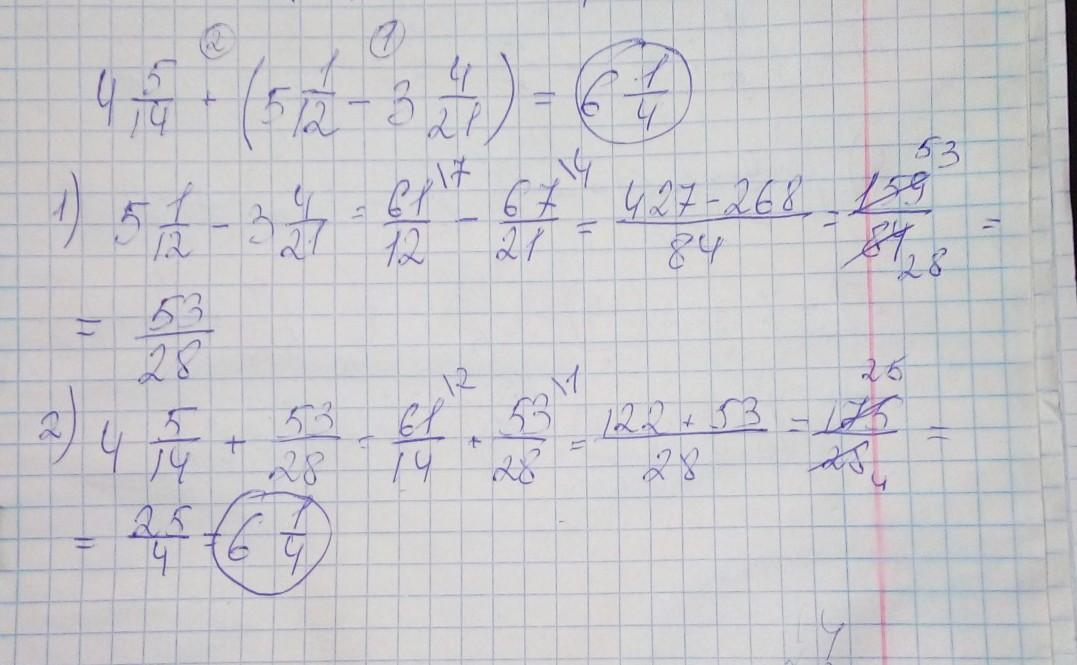 ② ①
4 5/14 + (5 1/12 - 3 4/21) = 6 1/4
1) 5 1/12 - 3 4/21 = 61/12 \7 - 67/21 \4 = 427-268/84 = 159/84 53/28 =
= 53/28
2) 4 5/14 + 53/28 = 61/14 \2 + 53/28 \1 = 122+53/28 = 175/28 25/4 =
= 25/4 = 6 1/4